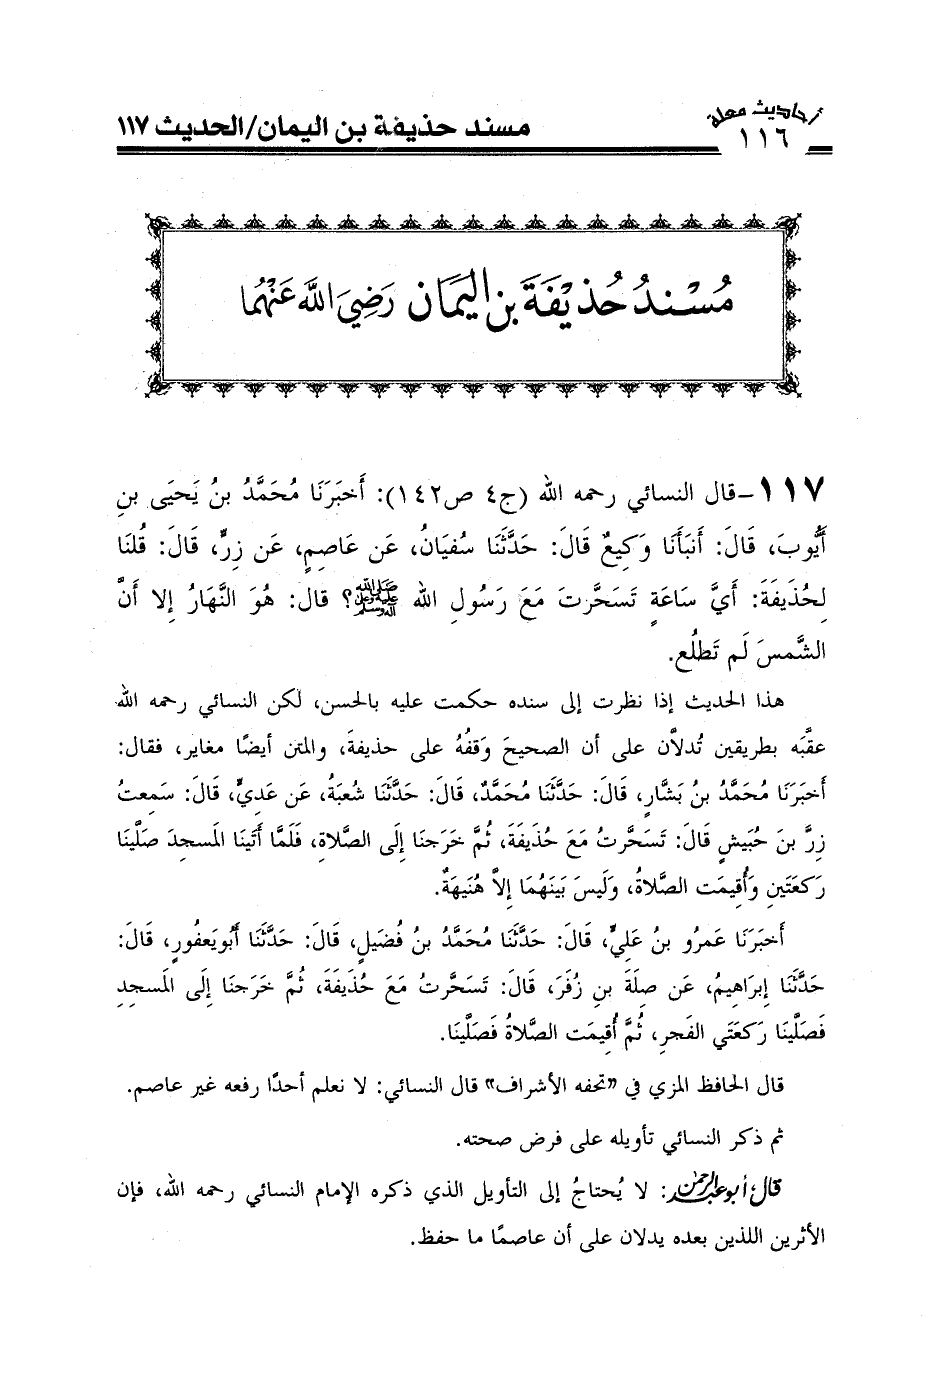 أحاديث معلة
١١٦
مسند حذيفة بن اليمان/الحديث ١١٧
مُسْنَدُ حُذَيْفَةَ بن اليَمَان رَضِيَ اللهَ عَنْهُمَا
١١٧-قال النسائي رحمه الله (ج٤ ص١٤٢): أَخبَرَنَا مُحَمَّدُ بنُ يَحيَى بنِ
أَيُّوبَ، قَالَ: أَنبَأَنَا وَكِيعٌ قَالَ: حَدَّثَنَا سُفيَانُ، عَن عَاصِمٍ، عَن زِرٍّ، قَالَ: قُلنَا
لِحُذَيفَةَ: أَيَّ سَاعَةٍ تَسَحَّرتَ مَعَ رَسُولِ الله ﷺ؟ قال: هُوَ النَّهَارُ إلا أَنَّ
الشَّمسَ لَم تَطلُع.
هذا الحديث إذا نظرت إلى سنده حكمت عليه بالحسن، لكن النسائي رحمه الله
عقَّبه بطريقين تُدلاَّن على أن الصحيحَ وَقفُهُ على حذيفةَ، والمتن أيضًا مغاير، فقال:
أَخبَرَنَا مُحَمَّدُ بنُ بَشَّارٍ، قَالَ: حَدَّثَنَا مُحَمَّدٌ، قَالَ: حَدَّثَنَا شُعبَةُ، عَن عَديٍّ، قَالَ: سَمعتُ
زِرَّ بنَ حُبَيشٍ قَالَ: تَسَحَّرتُ مَعَ حُذَيفَةَ، ثُمَّ خَرَجنَا إِلَى الصَّلاةِ، فَلَمَّا أَتَينَا المَسجدَ صَلَّينَا
رَكعَتَينِ وَأُقيمَت الصَّلاةُ، وَلَيسَ بَينَهُمَا إلاَّ هُنَيهَةٌ.
أَخبَرَنَا عَمرُو بنُ عَليٍّ، قَالَ: حَدَّثَنَا مُحَمَّدُ بنُ فُضَيلٍ، قَالَ: حَدَّثَنَا أَبُويَعفُورٍ، قَالَ:
حَدَّثَنَا إِبرَاهِيمُ، عَن صِلَةَ بنِ زُفَرَ، قَالَ: تَسَحَّرتُ مَعَ حُذَيفَةَ، ثُمَّ خَرَجنَا إِلَى المَسجِدِ
فَصَلَّينَا رَكعَتَي الفَجرِ، ثُمَّ أُقِيمَت الصَّلاةُ فَصَلَّينَا.
قال الحافظ المزي في «تحفه الأشراف» قال النسائي: لا نعلم أحدًا رفعه غير عاصم.
ثم ذكر النسائي تأويله على فرض صحته.
قال أبوعبدالرحمن: لا يُحتاجُ إلى التأويل الذي ذكره الإمام النسائي رحمه الله، فإن
الأثرين اللذين بعده يدلان على أن عاصمًا ما حفظ.